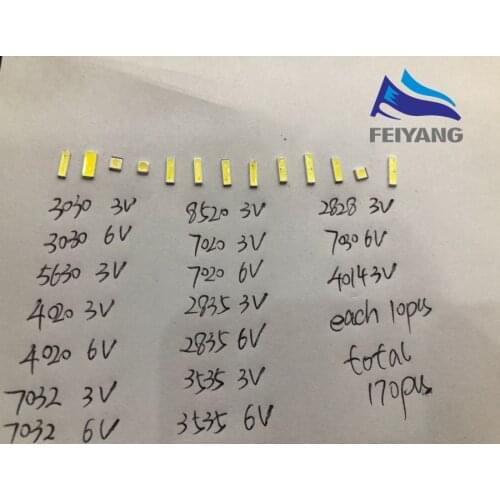 FEIYANG
3030 3V
3030 6V
5630 3V
4020 3V
4020 6V
7032 3V
7032 6V
8520 3V
7020 3V
7020 6V
2835 3V
2835 6V
3535 3V
3535 6V
2828 3V
7030 6V
4014 3V
each 10pcs
total
170pcs